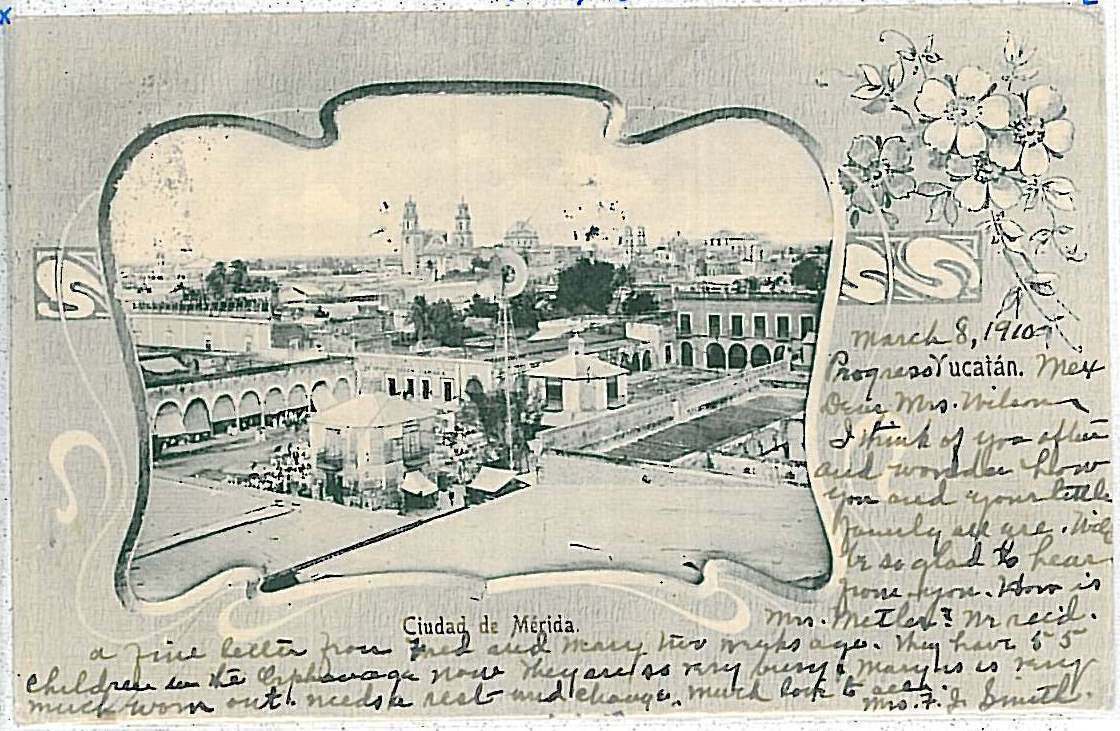 March 8, 1910
Progreso Yucatán. Mex
Dear Mrs. Wilson
I think of you often
and wonder how
you and your little
family all are. Will
be so glad to hear
from you. How is
Ciudad de Mérida.
Mrs. Metler? We rec'd.
a fine letter from Fred and Mary two weeks ago. They have 55
children in the Orphanage now They are so very busy & Mary is is very
much worn out. needs a rest and change. much love to all.
Mrs. F. J. Smith.